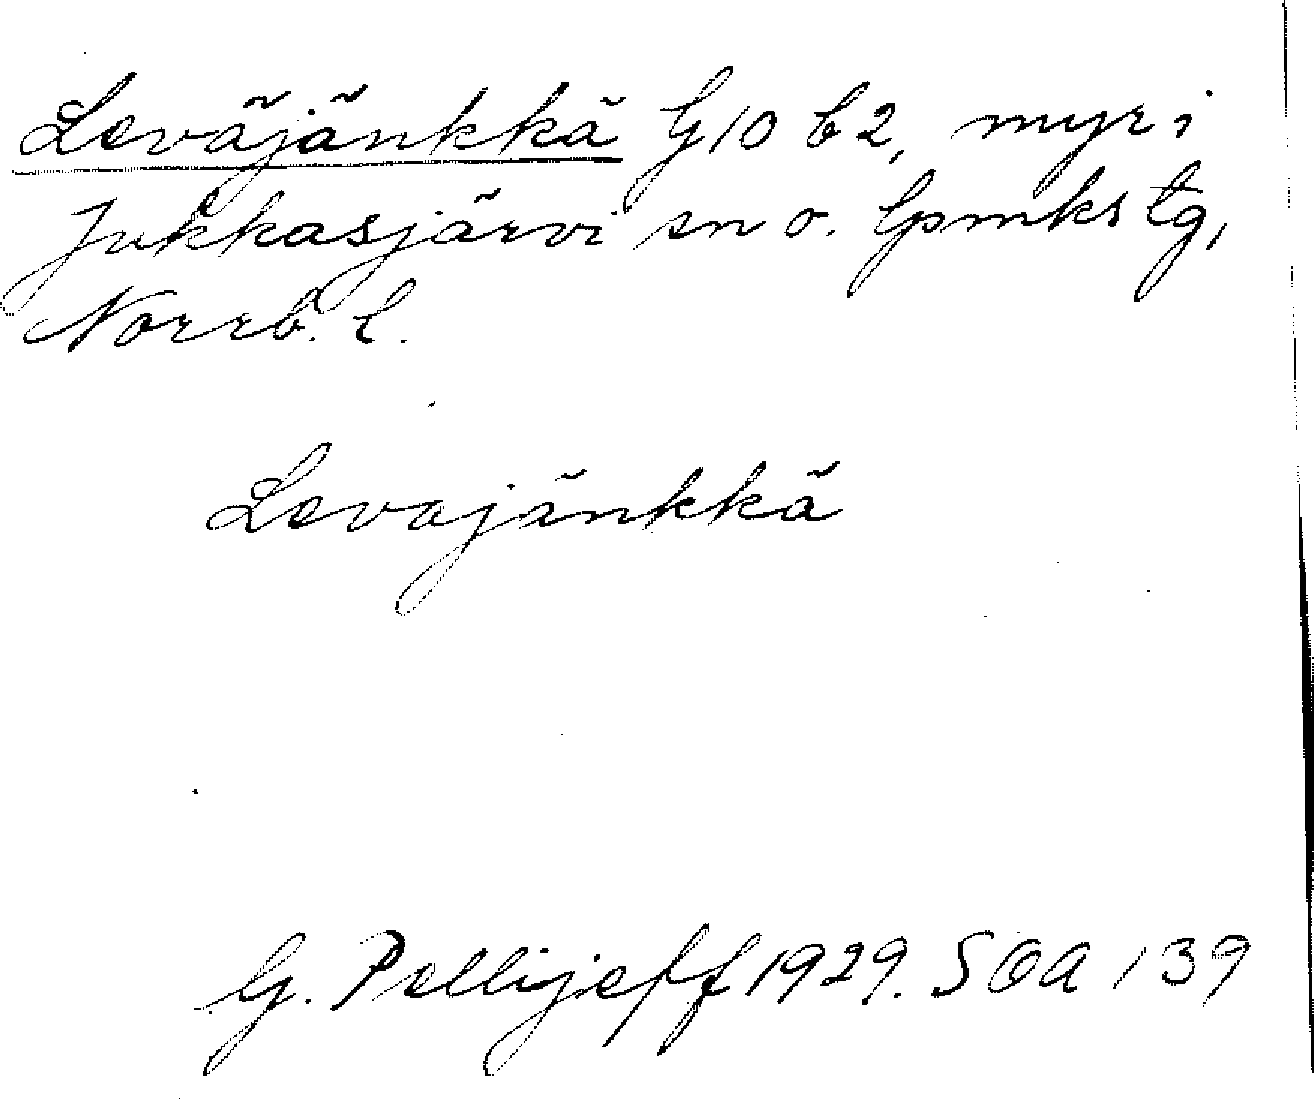 Leväjänkkä G10 b2, myr i
Jukkasjärvi sn o. lpmkstg,
Norrb. l.
Levajänkkä
G. Pellijeff 1929. SOA 139